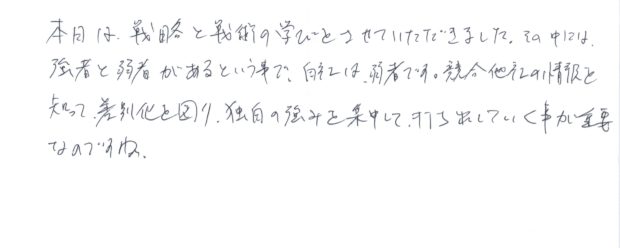 本日は、戦略と戦術の学びとさせていただきました。その中には、
強者と弱者があるという事で、自社は、弱者です。競合他社の情報を
知って、差別化を図り、独自の強みを集中して、打ち出していく事が重要
なのですね。